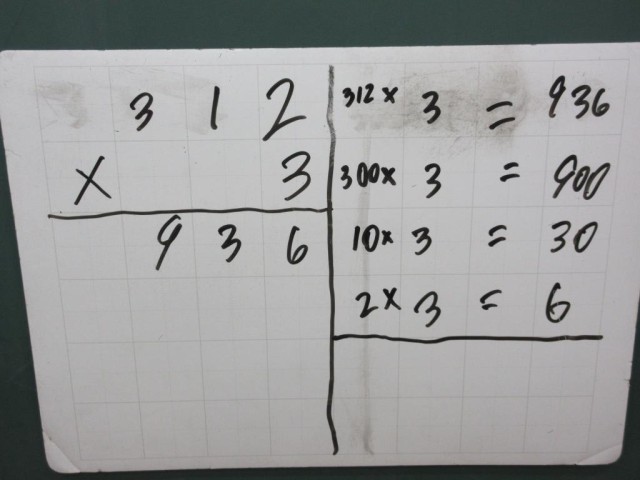 3 1 2
× 3
9 3 6
312 × 3 = 936
300 × 3 = 900
10 × 3 = 30
2 × 3 = 6